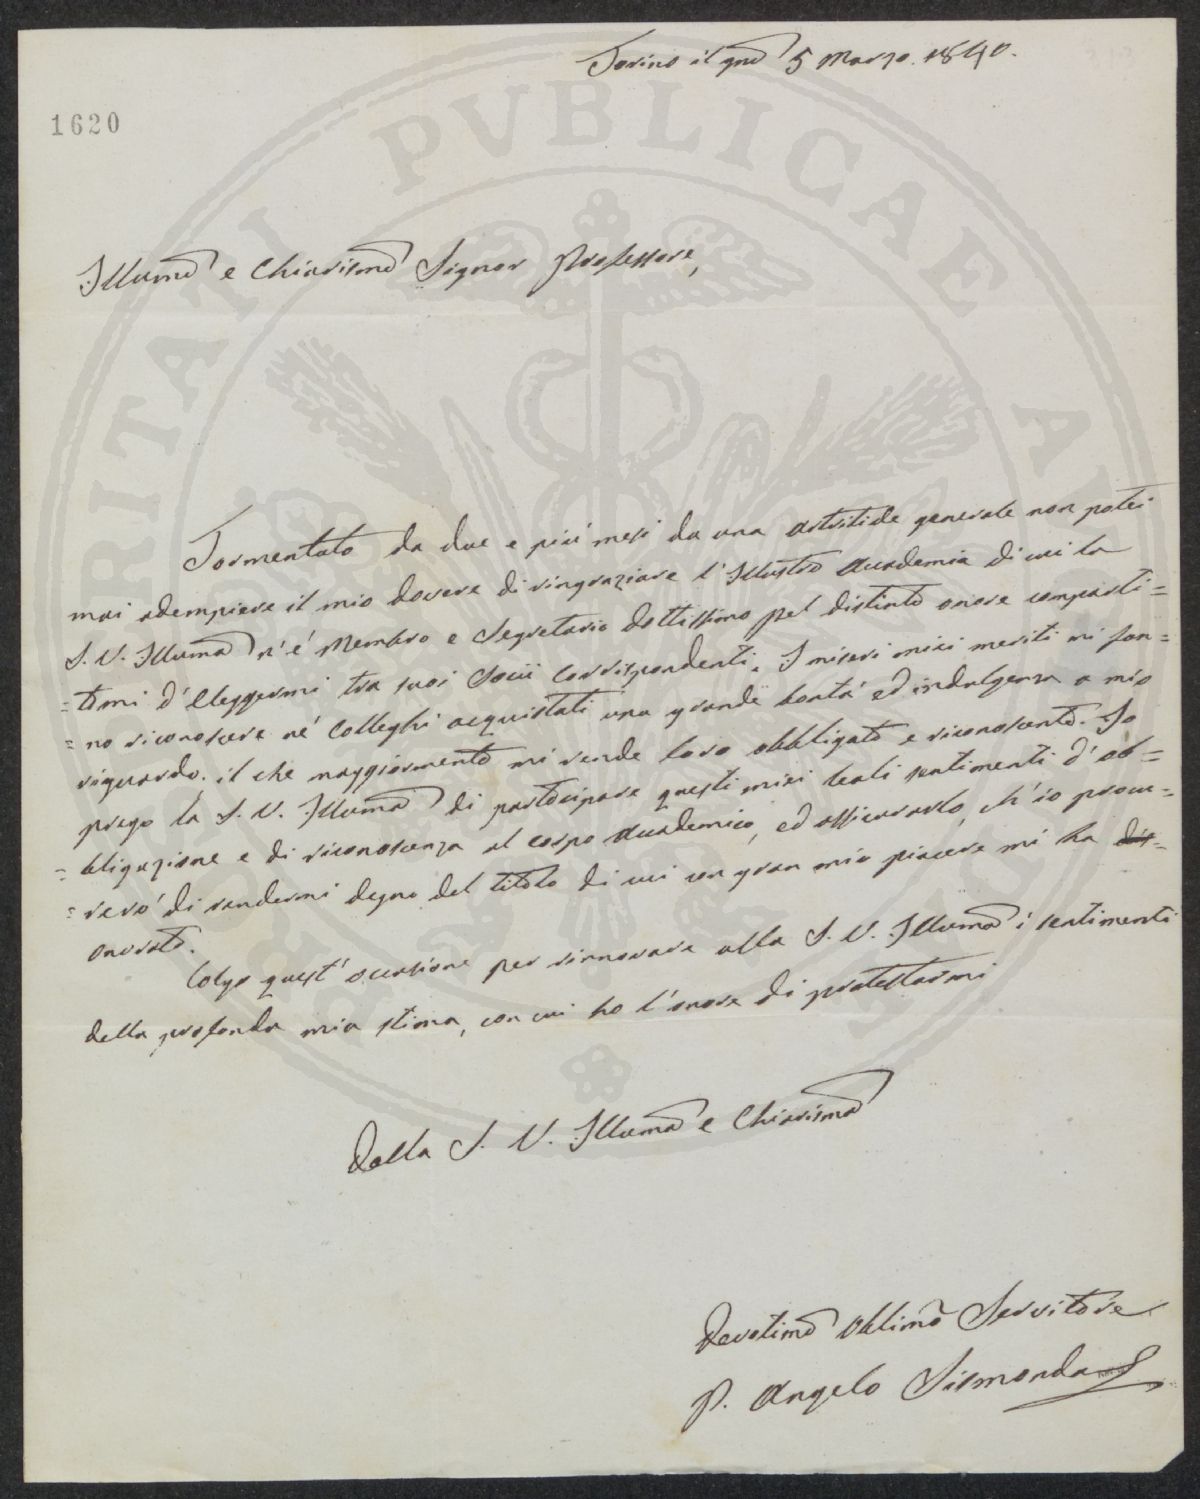 Torino il gno 5 Marzo. 1840.
1620
Illumo e Chiarismo Signor Professore,
Tormentato da due e più mesi da una artritide generale non potei
mai adempiere il mio dovere di ringraziare l'Illustre Accademia di cui la
S. V. Illuma n'é Membro e Segretario dottissimo pel distinto onore comparti=
=tomi d'elleggermi tra suoi Socii Corrispondenti. I miseri miei meriti mi fan=
=no riconoscere né Colleghi acquistati una grande bontà ed indulgenza a mio
riguardo; il che maggiormente mi rende loro obbligato e riconoscente. Io
prego la S. V. Illuma di partecipare questi miei leali sentimenti d'ob=
=bligazione e di riconoscenza al corpo Accademico, ed assicurarlo, ch'io procu=
=rerò di rendermi degno del titolo di cui con gran mio piacere mi ha
onorato.
Colgo quest'occasione per rinnovare alla S. V. Illuma i sentimenti
della profonda mia stima, con cui ho l'onore di protestarmi
Della S. V. Illuma e Chiarisma
Devotimo Obblimo Servitore
P. Angelo Sismonda
PVBLICAE